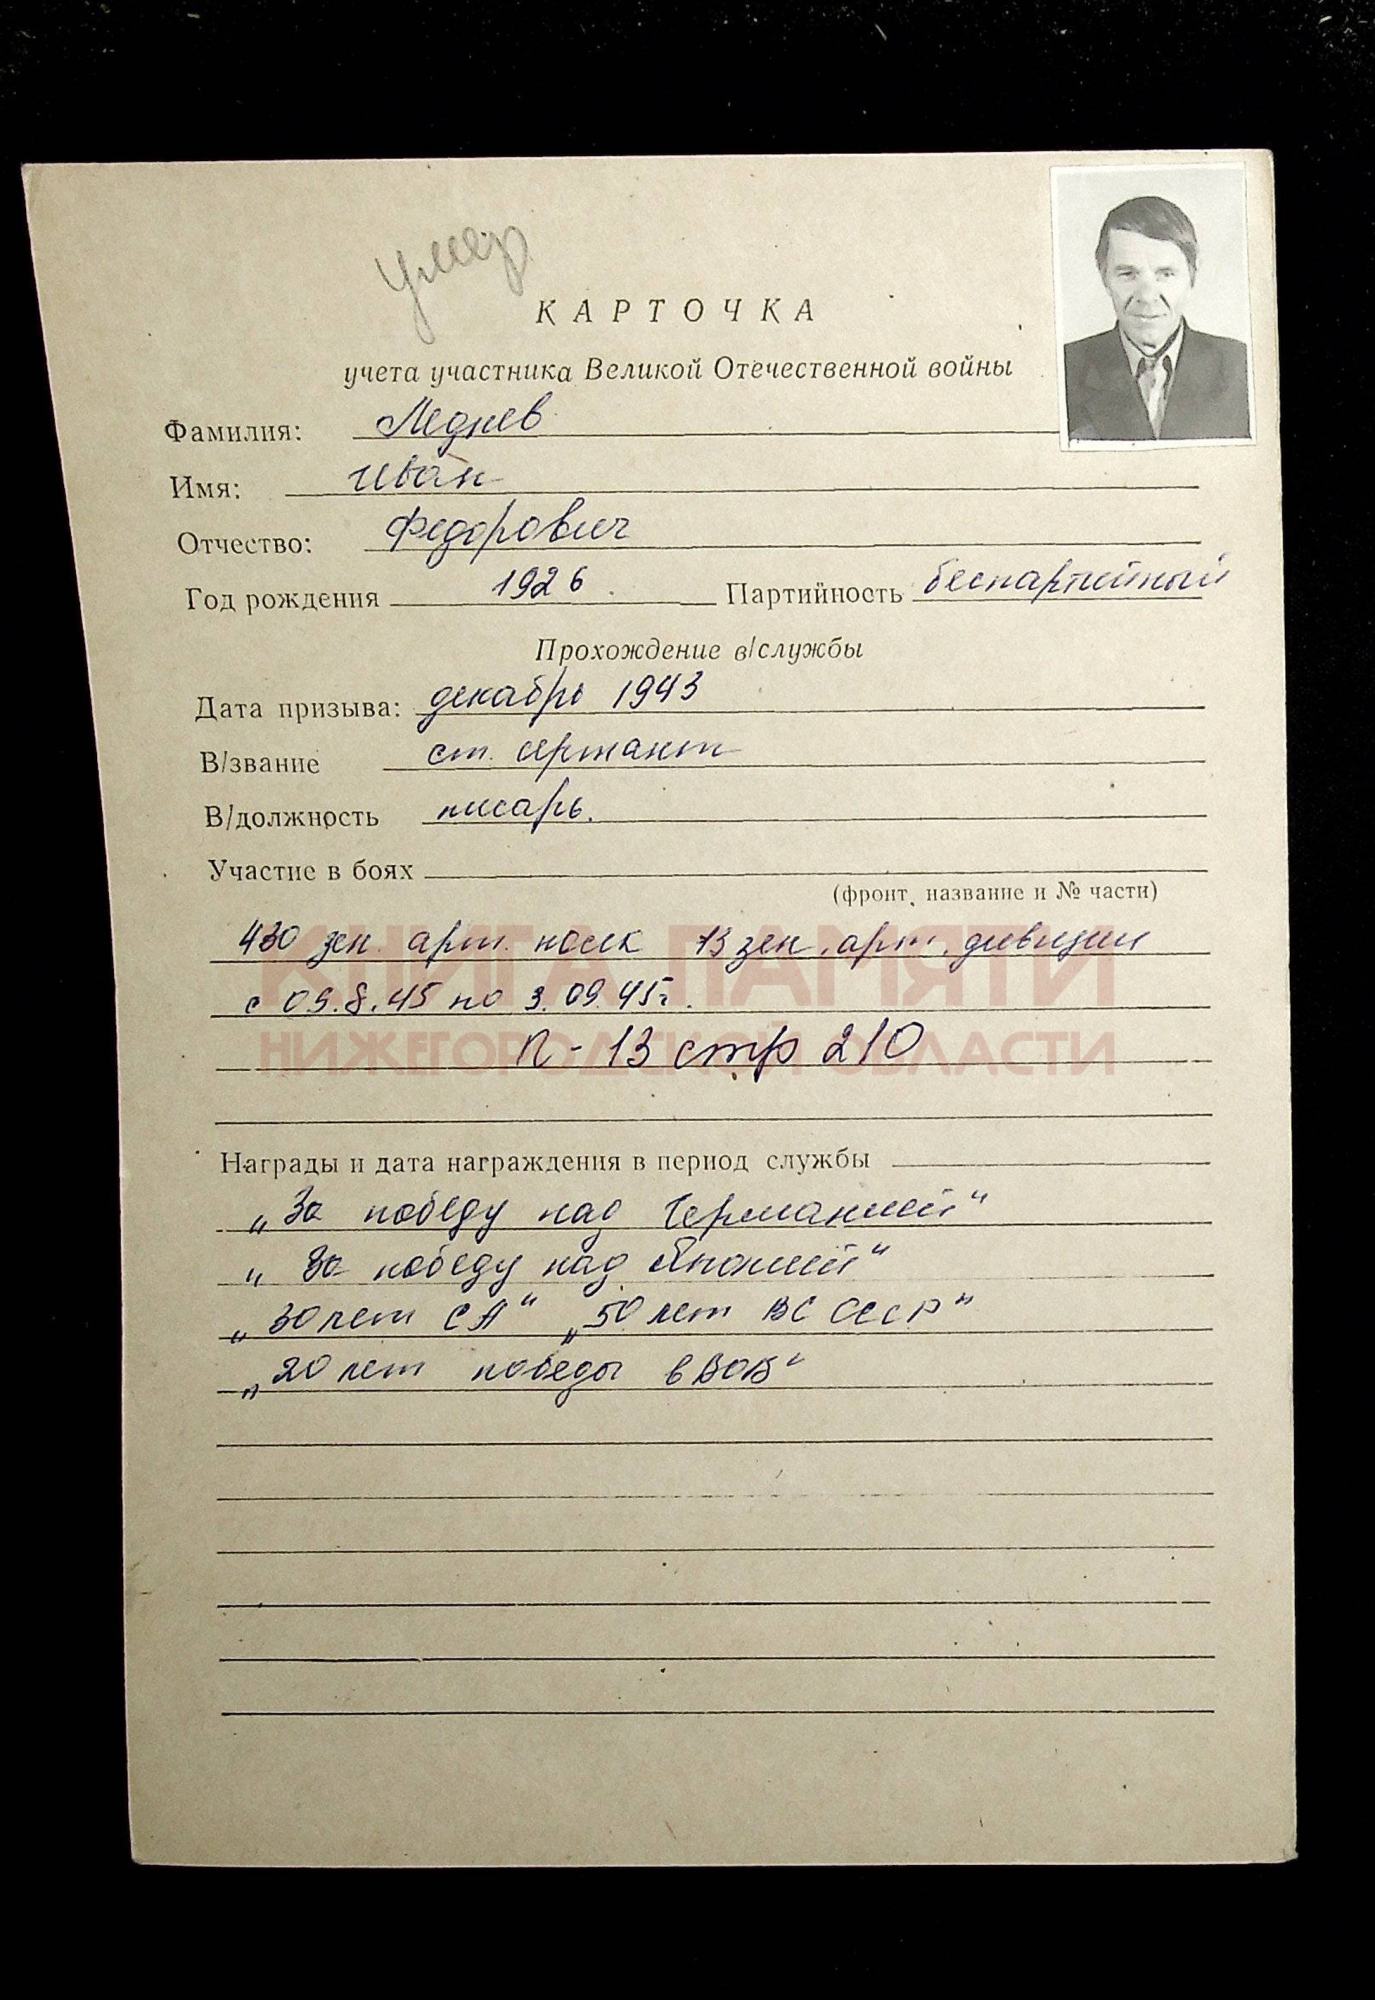 умер
КАРТОЧКА
учета участника Великой Отечественной войны
Фамилия: Леднев
Имя: Иван
Отчество: Федорович
Год рождения 1926. Партийность беспартийный
Прохождение в/службы
Дата призыва: декабрь 1943
В/звание ст. сержант
В/должность писарь.
Участие в боях
(фронт, название и № части)
430 зен. арт. полк 13 зен. арт. дивизии
с 09.8.45 по 3.09.45г.
КНИГА ПАМЯТИ
НИЖЕГОРОДСКОЙ ОБЛАСТИ
П-13 стр 210
Награды и дата награждения в период службы
„За победу над Германией“
„За победу над Японией“
„30 лет СА“ „50 лет ВС СССР“
„20 лет победы в ВОВ“